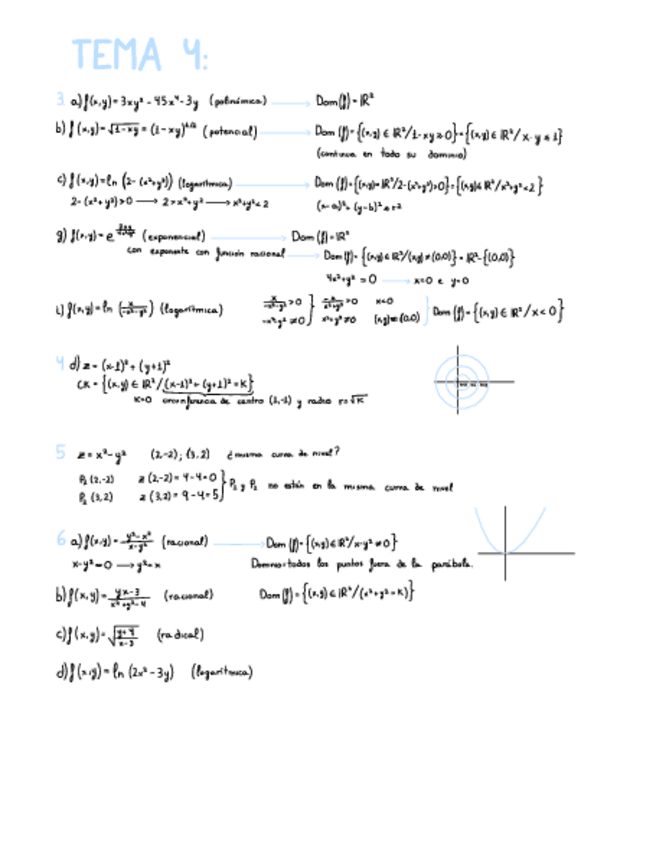 TEMA 4:
3. a) f(x,y)= 3xy² - 45x⁴ - 3y (polinómica) → Dom(f)= ℝ²
b) f(x,y)= √1-xy = (1-xy)^1/2 (potencial) → Dom(f)= {(x,y) ∈ ℝ²/1-xy≥0} = {(x,y) ∈ ℝ²/ x·y ≤ 1}
(continua en todo su dominio)
c) f(x,y)= ln (2-(x²+y²)) (logarítmica) → Dom(f)= {(x,y)∈ ℝ²/2-(x²+y²)>0} = {(x,y)∈ ℝ²/x²+y²<2}
2-(x²+y²)>0 → 2>x²+y² → x²+y²<2 (x-a)²+(y-b)²=r²
g) f(x,y)= e (exponencial) → Dom(f)= ℝ²
con exponente con función racional → Dom(f)= {(x,y) ∈ ℝ²/(x,y)≠(0,0)} = ℝ²-{(0,0)}
4x²+y²=0 → x=0 e y=0
i) f(x,y)= ln (x/-x²-y²) (logarítmica) x/-x²-y²>0 } x/x²+y²>0 x<0
-x²-y²≠0 x²+y²≠0 (x,y)≠(0,0) Dom(f)= {(x,y) ∈ ℝ²/x<0}
4 d) z=(x-1)²+(y+1)²
CK= {(x,y) ∈ ℝ²/(x-1)²+(y+1)²=K}
K=0 circunferencia de centro (1,-1) y radio r=√K
5 z=x²-y² (2,-2); (3,2) ¿misma curva de nivel?
P₁(2,-2) z(2,-2)=4-4=0 } P₁ y P₂ no están en la misma curva de nivel
P₂(3,2) z(3,2)=9-4=5
6 a) f(x,y)= y²-x²/x-y² (racional) → Dom(f)= {(x,y)∈ ℝ²/x-y²≠0}
x-y²=0 → y²=x Dominio=todos los puntos fuera de la parábola.
b) f(x,y)= yx-3/x²+y²-4 (racional) Dom(f)= {(x,y) ∈ ℝ²/(x²+y²=K)}
c) f(x,y)= √y+4/x-3 (radical)
d) f(x,y)= ln (2x²-3y) (logarítmica)